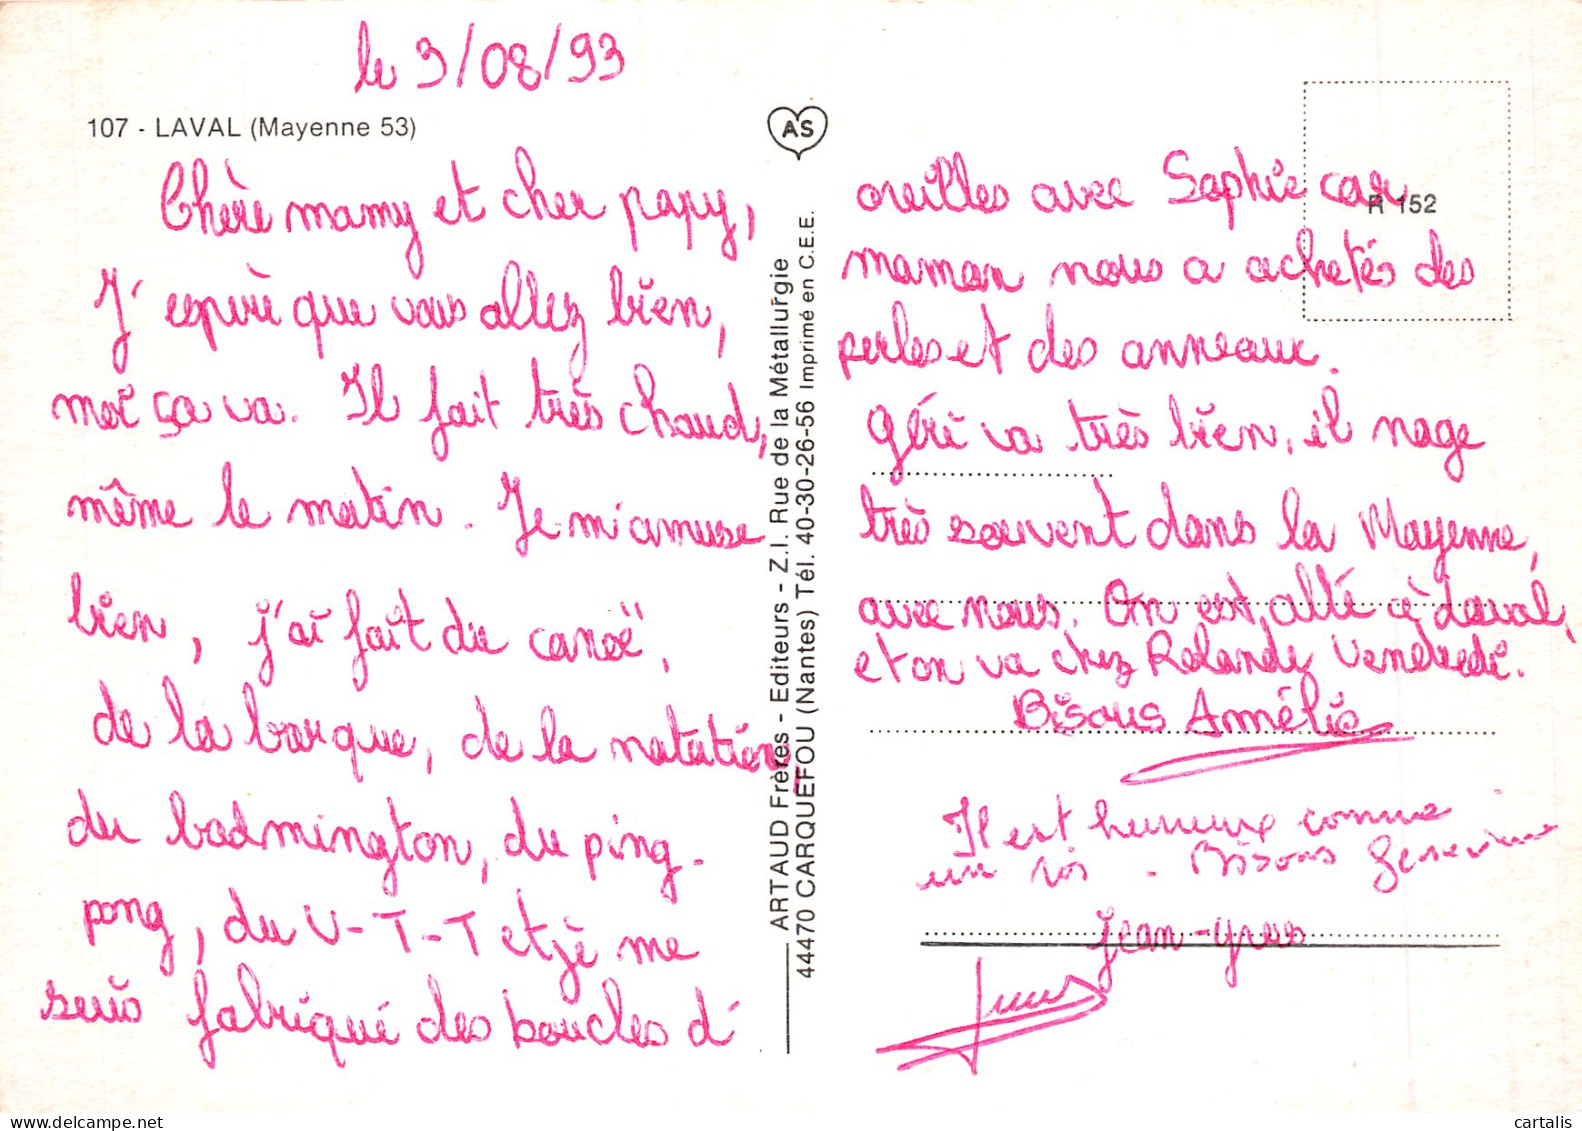 le 3/08/93
107 - LAVAL (Mayenne 53)
Chère mamy et cher papy,
J'espère que vous allez bien,
moi ça va. Il fait très chaud,
même le matin. Je m'amuse
bien, j'ai fait du canoë,
de la barque, de la natation,
du badmington, du ping-
pong, du V-T-T et je me
suis fabriqué des boucles d'
AS
ARTAUD Frères - Editeurs - Z.I. Rue de la Métallurgie
44470 CARQUEFOU (Nantes) Tél. 40-30-26-56 Imprimé en C.E.E.
R 152
oreilles avec Sophie car
maman nous a achetés des
perles et des anneaux.
Géré va très bien, il nage
très souvent dans la Mayenne,
avec nous. On est allé à Laval,
et on va chez Rolande Vendredi.
Bisous Amélie
Il est heureux comme
un roi - Bisous Geneviève
Jean-Yves